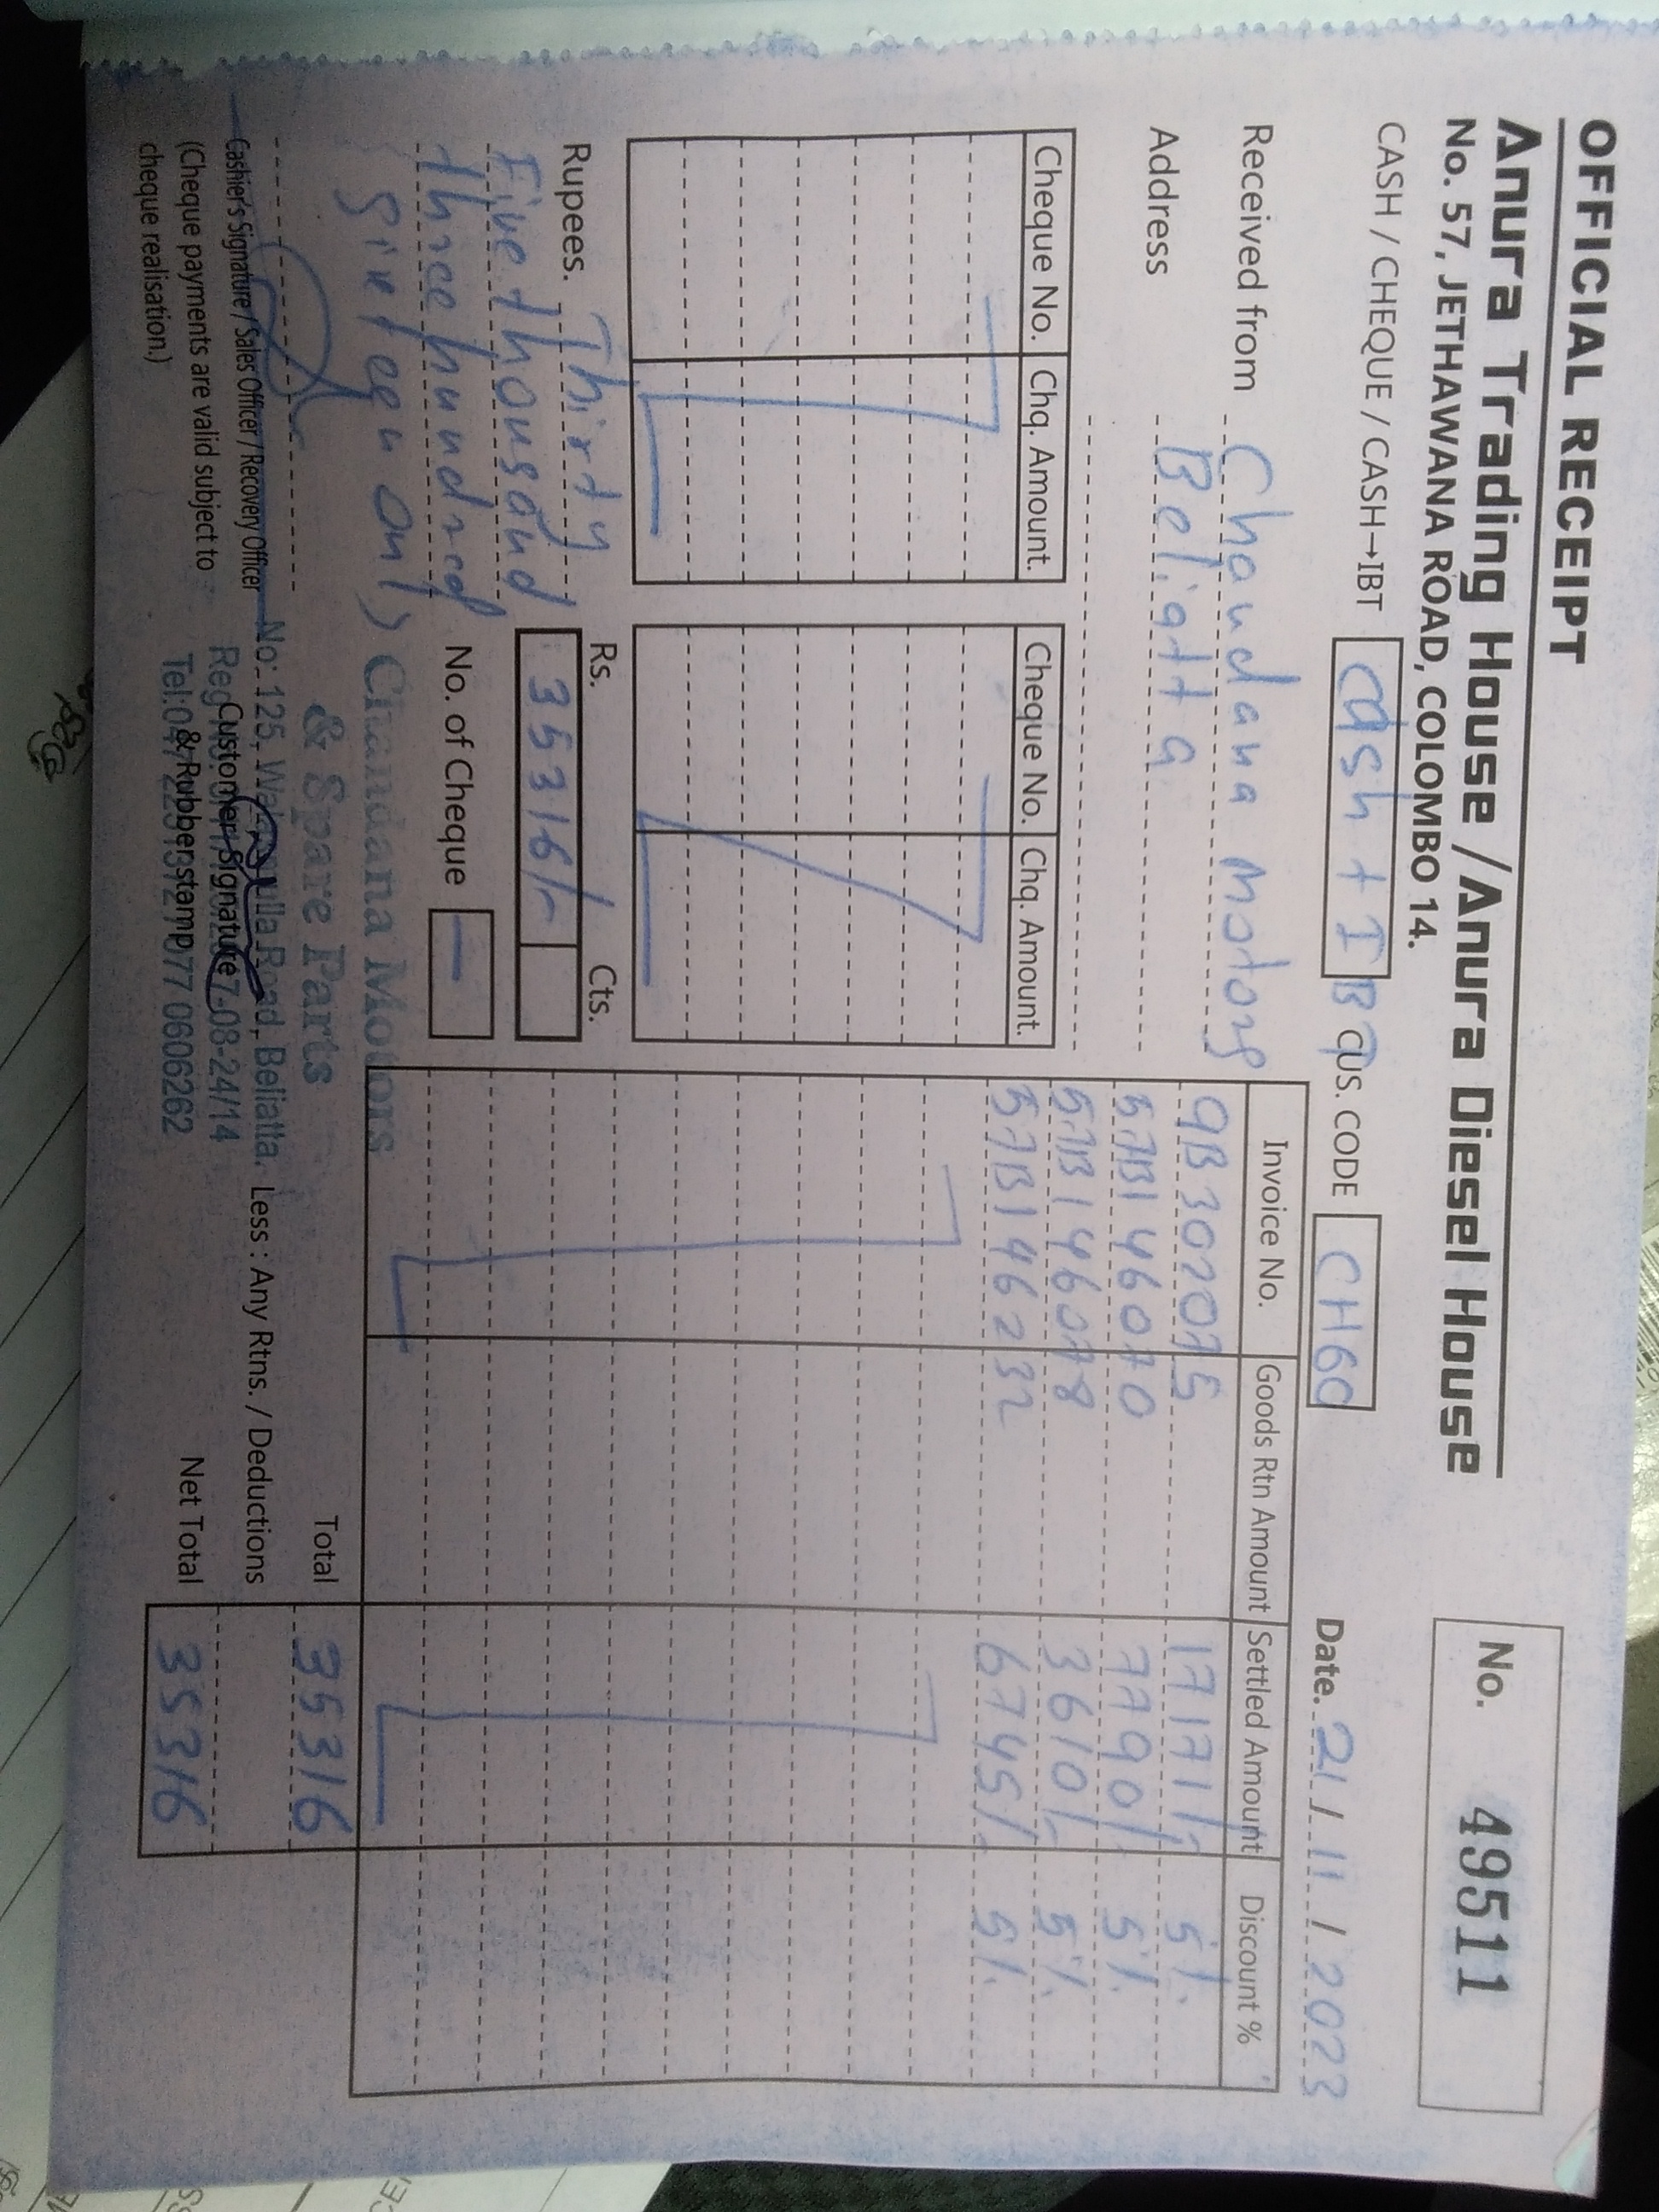 OFFICIAL RECEIPT
Anura Trading House / Anura Diesel House
No. 57, JETHAWANA ROAD, COLOMBO 14.
No. 49511
CASH / CHEQUE / CASH→IBT Cash + IB CUS. CODE CH60 Date. 21 / 11 / 2023
Received from Chandana Motors
Address Beliatta
Cheque No. Chq. Amount. Cheque No. Chq. Amount.
Invoice No. Goods Rtn Amount Settled Amount Discount %
9B302075 17171/- 5%
57B146070 7790/- 5%
57B146078 3610/- 5%
57B146232 6745/- 5%
Rupees. Thirty
Five thousand
three hundred
sixteen only
Rs. Cts.
35316/-
No. of Cheque —
Total 35316
Less : Any Rtns. / Deductions
Net Total 35316
Chandana Motors
& Spare Parts
No: 125, Road, Beliatta.
7-08-24/14
077 0606262
Customer Signature
& Rubber stamp
Cashier's Signature / Sales Officer / Recovery Officer
(Cheque payments are valid subject to
cheque realisation.)